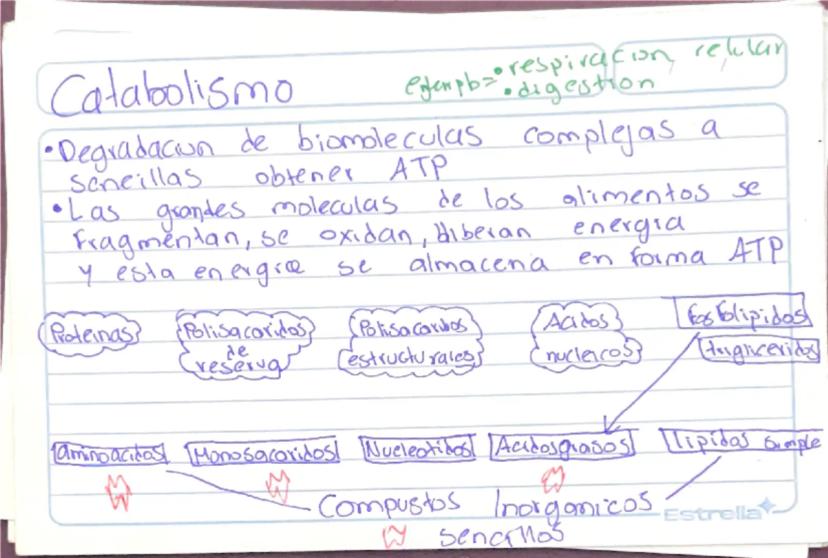 Catabolismo
ejempb= • respiracion celular
• digestion
• Degradacion de biomoleculas complejas a
sencillas obtener ATP
• Las grandes moleculas de los alimentos se
fragmentan, se oxidan, liberan energia
y esta energia se almacena en forma ATP
Proteinas
Polisacaridos
de
reserva
Polisacaridos
estructurales
Acidos
nucleicos
fosfolipidos
trigliceridos
aminoacidos
Monosacaridos
Nucleotidos
Acidosgrasos
lipidos simple
Compustos Inorganicos
sencillos
Estrella